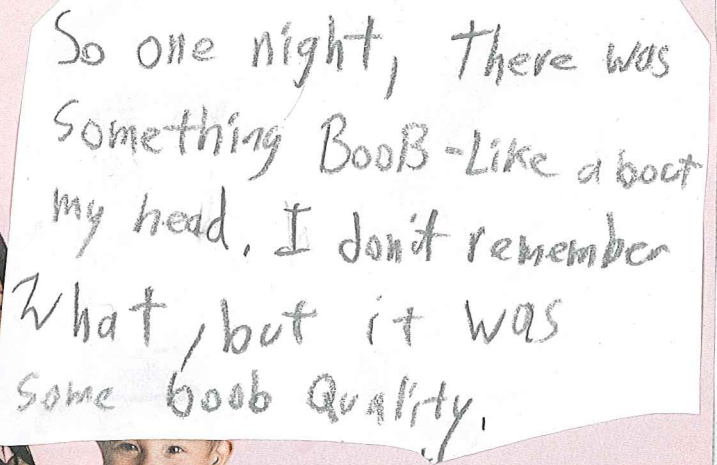 So one night, there was
something BooB-Like about
my head. I don't remember
What, but it was
some boob Quality.